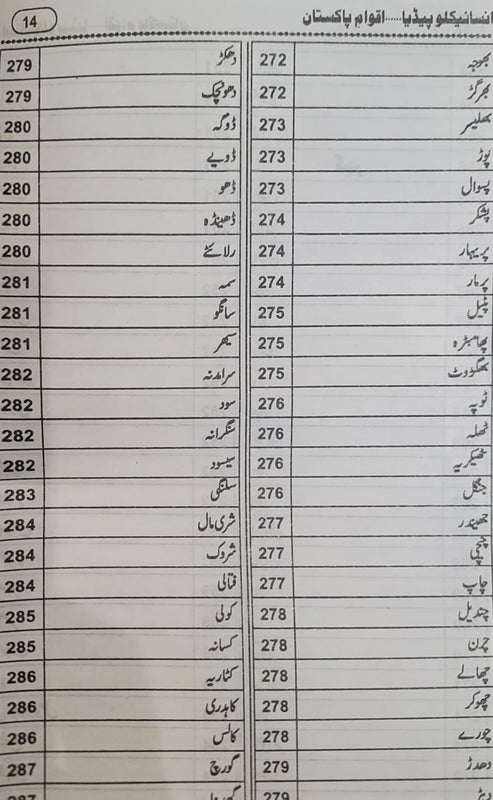 انسائیکلوپیڈیا.....اقوام پاکستان 14
بھوجہ 272
بھرگڑ 272
بھلیسر 273
پوڑ 273
پسوال 273
پشکر 274
پریہار 274
پرمار 274
پٹیل 275
پھامبڑہ 275
بھگووٹ 275
ٹوپہ 276
ٹھلہ 276
ٹھیکریہ 276
جنگل 276
چھیندر 277
چیچی 277
چاپ 277
چندیل 278
چرن 278
چھالے 278
چھوکر 278
چورے 278
دھدڑ 279
279
دھکڑ 279
دھونچک 279
ڈوگہ 280
ڈویے 280
ڈھو 280
ڈھینڈہ 280
رلائے 280
سمہ 281
سانگو 281
سیھر 281
سرامدنہ 282
سود 282
سنگرانہ 282
سیسود 282
سلنگی 283
شری مال 284
شروک 284
فتالی 284
کولی 285
کسانہ 285
کٹاریہ 286
کاہدری 286
کالس 286
گورچ 287
287